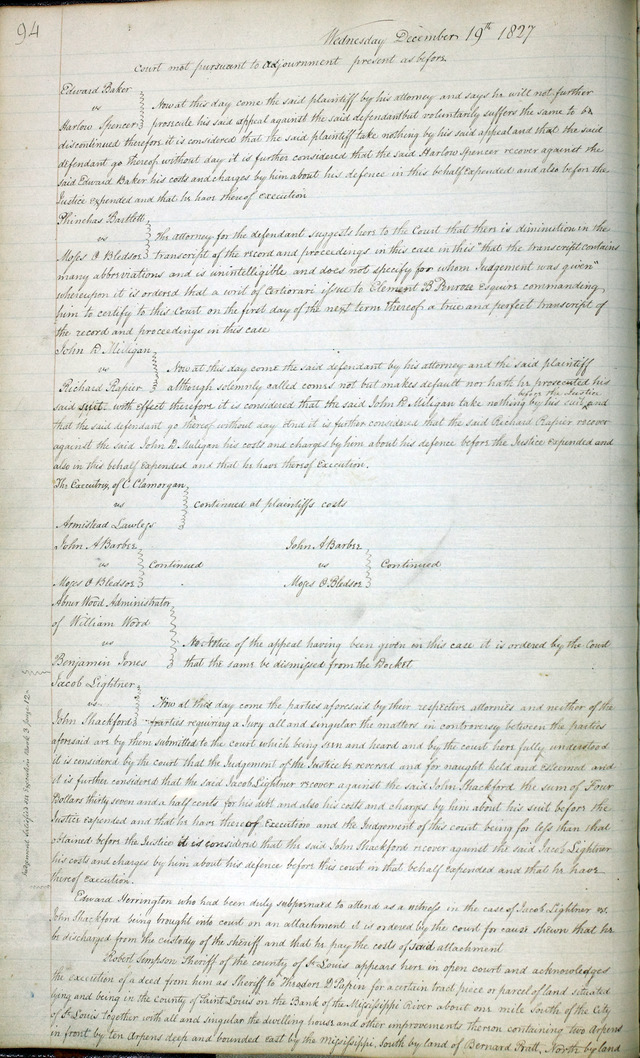 94
Wednesday December 19th 1827
Court met pursuant to adjournment present as before
Edward Baker
vs
Harlow Spencer
Now at this day come the said plaintiff by his attorney and says he will not further
prosecute his said appeal against the said defendant but voluntarily suffers the same to be
discontinued therefore it is considered that the said plaintiff take nothing by his said appeal and that the said
defendant go thereof without day it is further considered that the said Harlow Spencer recover against the
said Edward Baker his costs and charges by him about his defence in this behalf expended and also before the
Justice expended and that he have thereof execution
Phinehas Bartlett
vs
Moses O Bledsoe
The attorney for the defendant suggests here to the Court that there is diminution in the
transcript of the record and proceedings in this case in this "that the transcript contains
many abbreviations and is unintelligible and does not specify for whom Judgement was given"
whereupon it is ordered that a writ of Certiorari issue to Clement B Penrose Esquire commanding
him to certify to this Court on the first day of the next term thereof a true and perfect transcript of
the record and proceedings in this case
John R Miligan
vs
Richard Rapier
Now at this day come the said defendant by his attorney and the said plaintiff
although solemnly called comes not but makes default nor hath he prosecuted his
before the Justice
said suit with effect therefore it is considered that the said John R Miligan take nothing by his suit and
that the said defendant go thereof without day and it is further considered that the said Richard Rapier recover
against the said John R Muligan his costs and charges by him about his defence before the Justice expended and
also in this behalf expended and that he have thereof Execution.
The Executrix of C Clamorgan
vs
Armistead Lawless
Continued at plaintiffs costs
John A Barber
vs
Moses O Bledsoe
Continued
John A Barber
vs
Moses O Bledsoe
Continued
Abner Wood Administrator
of William Wood
vs
Benjamin Jones
No Notice of the appeal having been given in this case it is ordered by the Court
that the same be dismissed from the Docket
Jacob Lightner
vs
John Shackford
Now at this day come the parties aforesaid by their respective attornies and neither of the
parties requiring a Jury all and singular the matters in controversy between the parties
aforesaid are by them submitted to the court which being seen and heard and by the court here fully understood
it is considered by the court that the Judgement of the Justice be reversed and for naught held and esteemed and
it is further considered that the said Jacob Lightner recover against the said John Shackford the sum of Four
Dollars thirty seven and a half cents for his debt and also his costs and charges by him about his suit before the
Justice expended and that he have thereof Execution and the Judgement of this court being for less than that
obtained before the Justice it is considered that the said John Shackford recover against the said Jacob Lightner
his costs and charges by him about his defence before this court in that behalf expended and that he have
thereof execution.
Judgment satisfied
Edward Horrington who had been duly subpoenaed to attend as a witness in the case of Jacob Lightner vs.
John Shackford being brought into court on an attachment it is ordered by the court for cause shewn that he
be discharged from the custody of the sheriff and that he pay the costs of said attachment
Robert Sempson Sheriff of the county of St Louis appears here in open court and acknowledges
the execution of a deed from him as Sheriff to Theodore D Papin for a certain tract piece or parcel of land situated
lying and being in the County of Saint Louis on the Bank of the Mississippi River about one mile South of the City
of St Louis together with all and singular the dwelling house and other improvements thereon containing two Arpens
in front by ten Arpens deep and bounded east by the Mississippi, South by land of Bernard Pratt, North by land